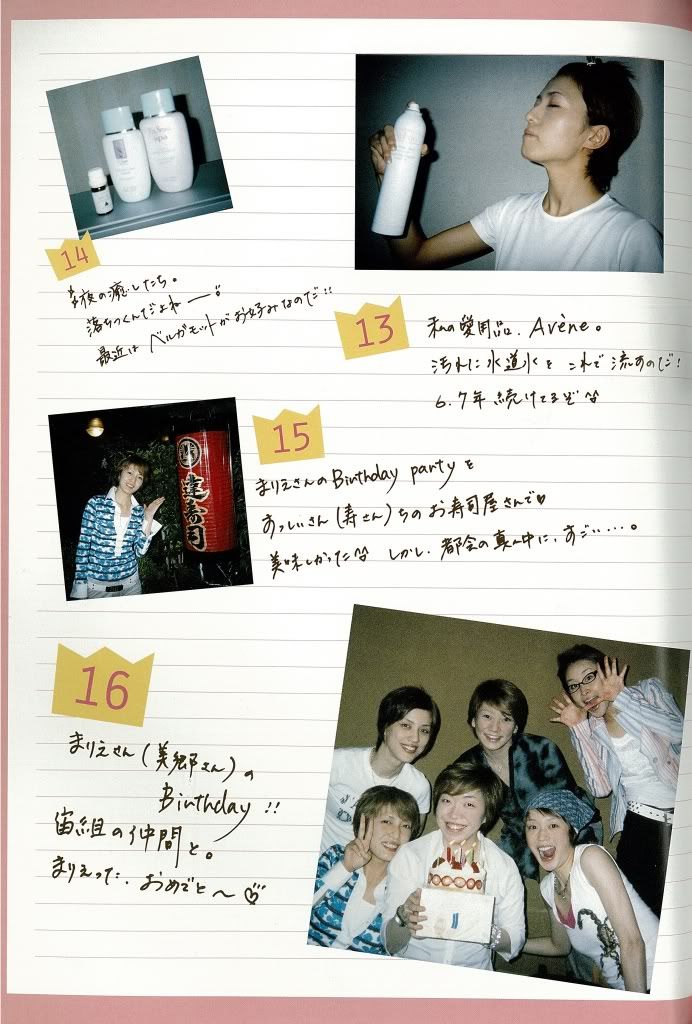 14
夜の癒したち。
落ちつくんだよねー
最近はベルガモットがお好みなのだ!!
13
私の愛用品、Avène。
汚れに水道水をこれで流すのだ!
6、7年続けてるぞ
15
まりえさんのBirthday partyを
あっしいさん(寿さん)ちのお寿司屋さんで♡
美味しかった しかし、都会の真ん中に、すごい…。
達寿司
16
まりえさん(美郷さん)の
Birthday!!
宙組の仲間と。
まりえった、おめでと〜♡